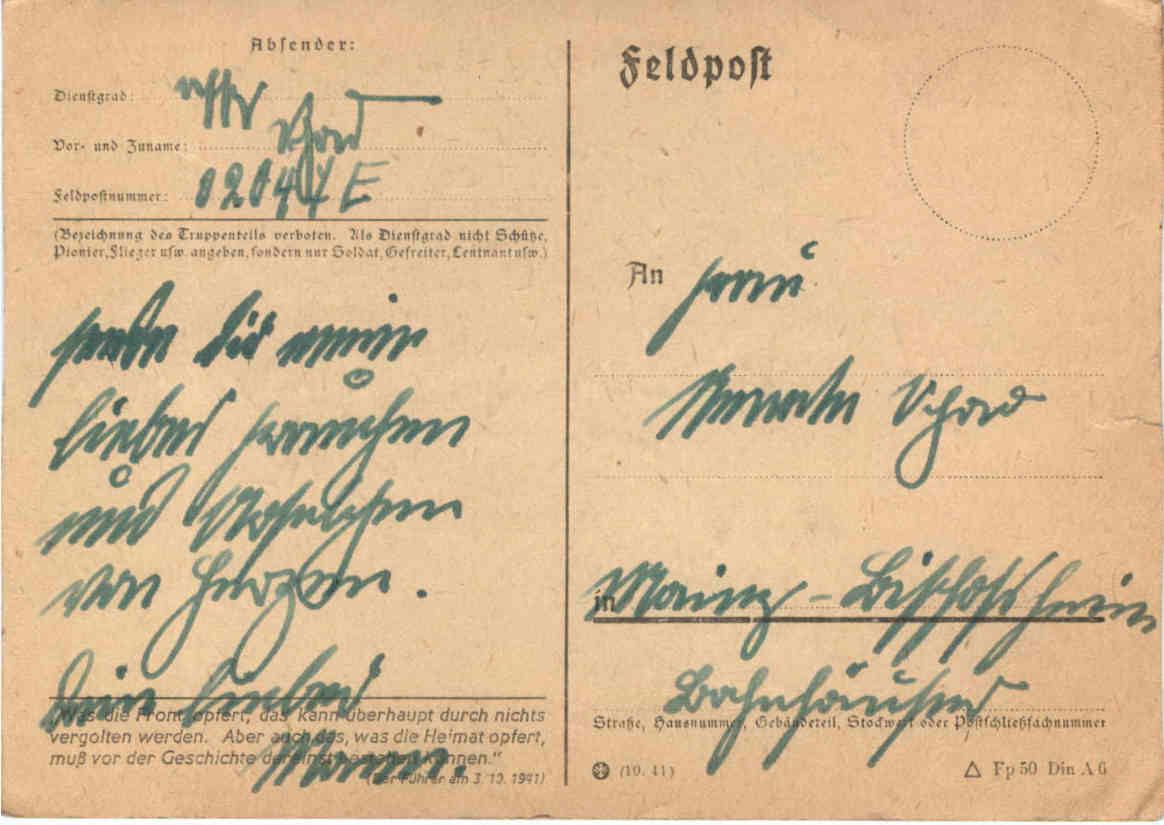 Absender:
Dienstgrad: Uffz
Vor- und Zuname: Schad
Feldpostnummer: 02047 E
(Bezeichnung des Truppenteils verboten. Als Dienstgrad nicht Schütze,
Pionier, Flieger usw. angeben, sondern nur Soldat, Gefreiter, Leutnant usw.)
mein
liebes Frauchen
und
von Herzen.
Dein lieber
"Was die Front opfert, das kann überhaupt durch nichts
vergolten werden. Aber auch das, was die Heimat opfert,
muß vor der Geschichte dereinst bestehen können."
(Der Führer am 3. 10. 1941)
Feldpost
An Frau
Schad
in Mainz-Bischofsheim
Bahnhäuser
Straße, Hausnummer, Gebäudeteil, Stockwerk oder Postschließfachnummer
(10. 41)
Fp 50 Din A 6